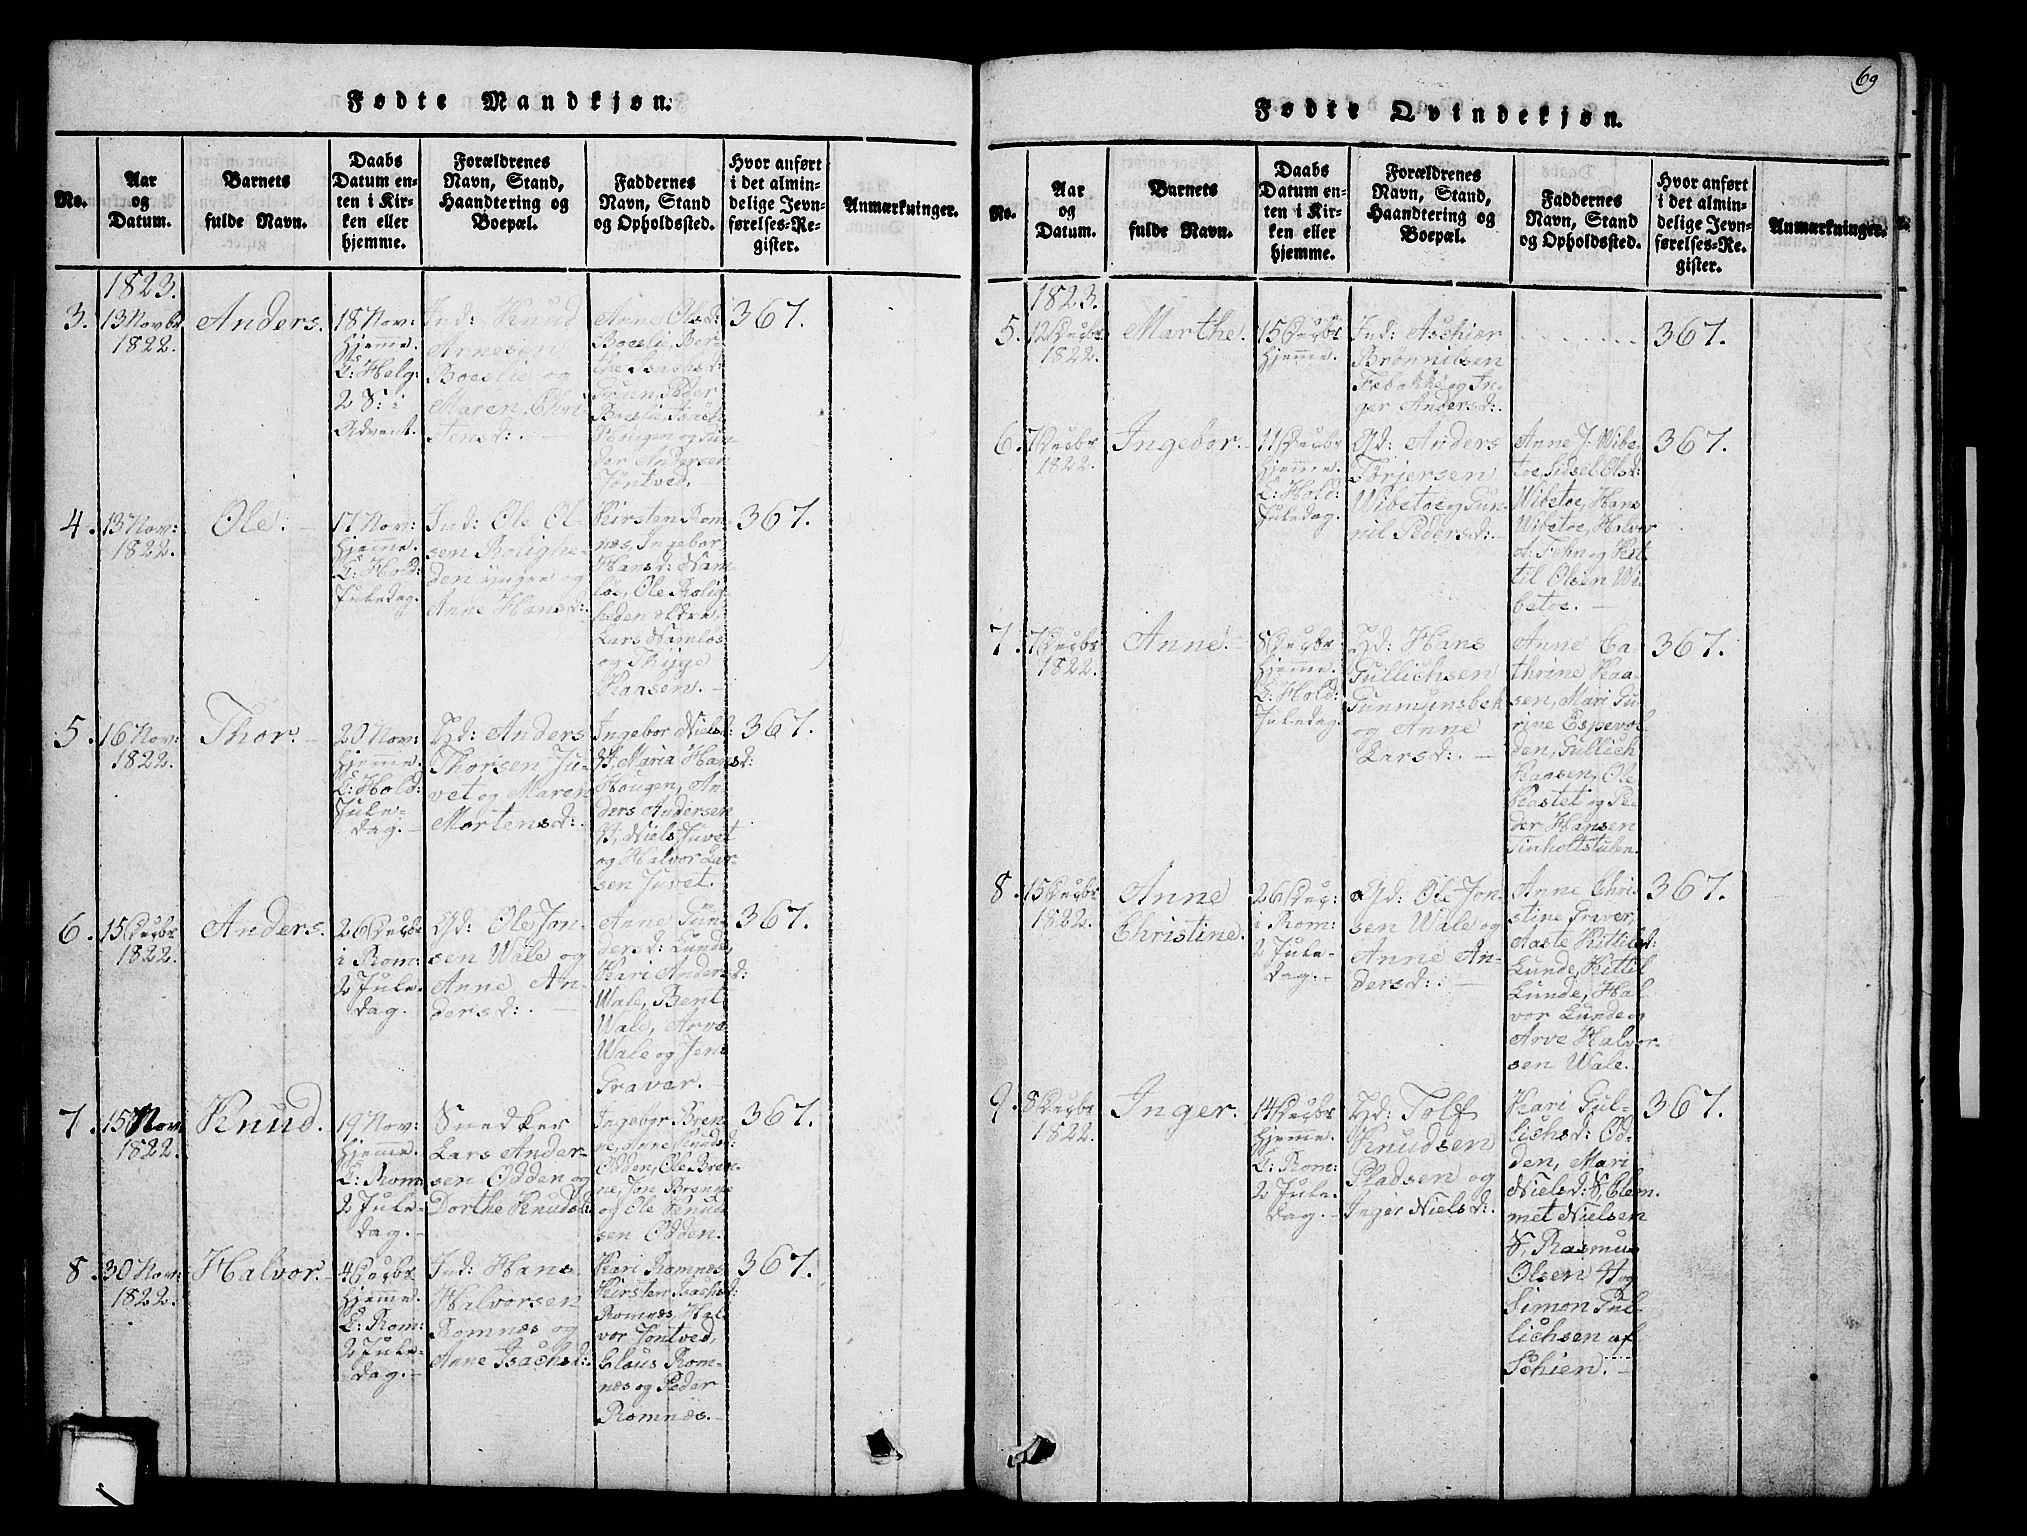 Fødte Mandkjøn.
No.
Aar
og
Datum.
Barnets
fulde Navn.
Daabs
Datum en-
ten i Kir-
ken eller
hjemme.
Forældrenes
Navn, Stand,
Haandtering og
Boepæl.
Faddernes
Navn, Stand
og Opholdssted.
Hvor anført
i det almin-
delige Jevn-
førelses-Re-
gister.
Anmærkninger.
1823.
3.
13 Novbr
1822.
Anders.
18 Nov:
hjeme.
Helg:
2 S: i
Advent.
Ind: Knud
Arnesen
Boeslie og
Maren Chri-
stensd:. -
Arne Olsd:
Boeslie, Ber-
the Isachsd:
Gruen, Peder
Boeslie, Isach
Hougen og Gun-
der Andersen
Jøntved.
367.
4.
13 Nov:
1822.
Ole. -
17 Nov:
hjeme.
Hold:
Juledag.
Ind: Ole Ol-
sen Rolighe-
den yngre og
Anne Hansd:.
Kirsten Rom-
næs, Ingebor
Hansd: Nam-
løs, Ole Rolig-
heden ældre,
Lars Namløs
og Thyge
Kaasen. -
367.
5.
16 Nov:
1822.
Thor. -
20 Nov:
hjeme.
Hold:
Jule-
dag. -
Hd: Anders
Thorsen Ju-
vet og Maren
Mortensd:. -
Ingebor Nielsd:
St, Maria Hansd:
Hougen, An-
ders Andersen
St, Niels Juvet
og Halvor Lar-
sen Juvet. -
367.
6.
15 Decbr
1822.
Anders.
26 Decbr
i Rom:
2 Jule-
dag. -
Gd: Ole Jon-
sen Wale og
Anne An-
dersd:. -
Anne Gun-
dersd: Lunde,
Kari Andersd:
Wale, Bent
Wale, Arve
Wale og Jens
Graver. -
367.
7.
15 Nov:
1822.
Knud.
19 Nov:
hjeme.
Rom:
2 Jule-
dag. -
Snedker
Lars Ander-
sen Odden og
Dorthe Knudsd:
Ingebor Bren-
ne, Anne Knudsd:
Odden, Ole Bren-
ne, Jon Brenne
og Ole Knud-
sen Odden.
367.
8.
30 Nov:
1822.
Halvor. -
4 Decbr
hjeme.
Rom:
2 Jule-
dag. -
Ind: Hans
Halvorsen
Romnæs og
Anne Isachsd:.
Kari Romnæs,
Kirsten Isachsd:
Romnæs, Hal-
vor Jøntved,
Claus Rom-
næs og Peder
Romnæs. -
367.
69
Fødte Qvindekjøn.
No.
Aar
og
Datum.
Barnets
fulde Navn.
Daabs
Datum en-
ten i Kir-
ken eller
hjemme.
Forældrenes
Navn, Stand,
Haandtering og
Boepæl.
Faddernes
Navn, Stand
og Opholdssted.
Hvor anført
i det almin-
delige Jevn-
førelses-Re-
gister.
Anmærkninger.
1823.
5.
12 Decbr
1822.
Marthe.
15 Decbr
hjeme.
Ind: Aschier
Brønnilsen
Febakke og In-
ger Andersd:.
367.
6.
7 Decbr
1822.
Ingebor. -
11 Decbr
hjeme.
Hold:
Juledag.
Gd: Anders
Torjersen
Wibetoe og Gun-
nil Pedersd:. -
Anne J. Wibe-
toe, Sidsel Olsd:
Wibetoe, Hans
Wibetoe, Halvor
A: Fehn og Kit-
til Olsen Wi-
betoe. -
367.
7.
7 Decbr
1822.
Anne. -
8 Decbr
hjeme.
Hold:
Juledag.
Hd: Hans
Gullichsen
Gunmunsbek
og Anne
Larsd:. -
Anne Ca-
thrine Kaa-
sen, Mari Gu-
rine Espevol-
den, Gullich
Kaasen, Ole
Rastet og Pe-
der Hansen
Tinholtstulen.
367.
8.
15 Decbr
1822.
Anne
Christine.
26 Decbr:
i Rom:
2 Jule-
dag. -
Gd: Ole Jon-
sen Wale og
Anne An-
dersd:. -
Anne Chri-
stine Graver,
Aaste Kittilsd:
Lunde, Kittil
Lunde, Hal-
vor Lunde og
Arve Halvor-
sen Wale.
367.
9.
8 Decbr
1822.
Inger.
14 Decbr
hjeme.
Rom:
2 Jule-
dag. -
Hd: Tolf
Knudsen
Pladsen og
Inger Nielsd:.
Kari Gul-
lichsd: Od-
den, Mari
Nielsd: S, Clem-
met Nielsen
S, Rasmus
Olsen St og
Simon Gul-
lichsen af
Schien. -
367.